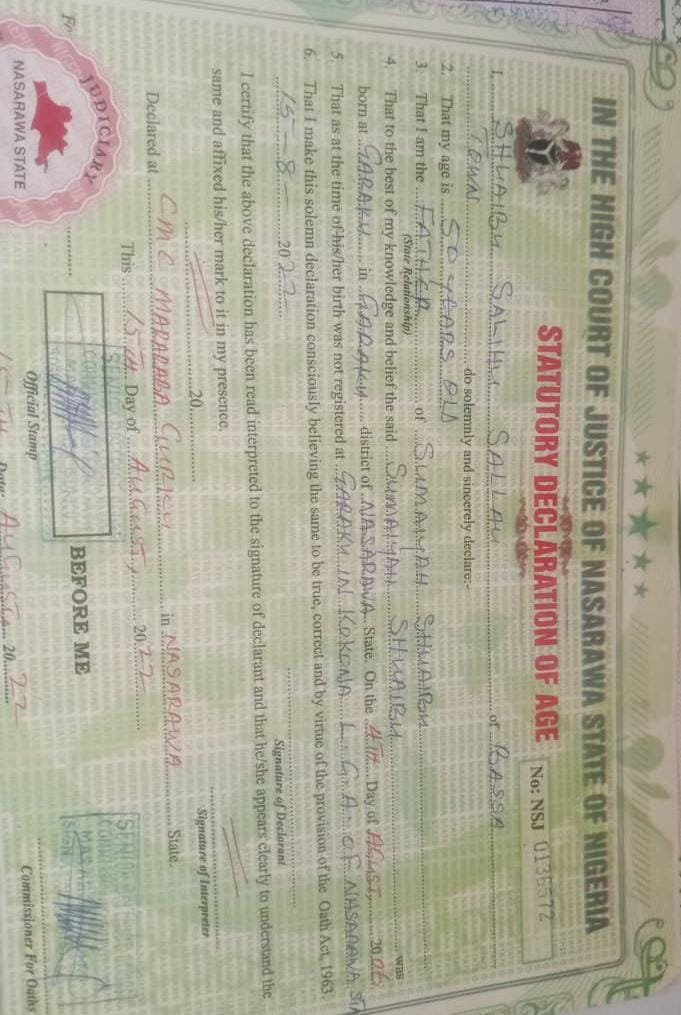 IN THE HIGH COURT OF JUSTICE OF NASARAWA STATE OF NIGERIA
STATUTORY DECLARATION OF AGE
No: NSJ 0136572
I, SHUAIBU SALIHU SALLAU of BASSA
TOWN do solemnly and sincerely declare:-
2. That my age is 50 YEARS OLD
3. That I am the FATHER of SUMAIYAH SHUAIBU
(State Relationship)
4. That to the best of my knowledge and belief the said SUMAIYAH SHUAIBU was
born at GARAKU in GARAKU district of NASARAWA State. On the 4TH Day of AUGUST, 2006
5. That as at the time of his/her birth was not registered at GARAKU IN KOKONA L.G.A. OF NASARAWA STA
6. That I make this solemn declaration consciously believing the same to be true, correct and by virtue of the provision of the Oath Act, 1963.
15-8-2022
Signature of Declarant
I certify that the above declaration has been read interpreted to the signature of declarant and that he/she appears clearly to understand the
same and affixed his/her mark to it in my presence.
20
Signature of Interpreter
Declared at CMC MARARABA GURKU in NASARAWA State.
This 15TH Day of AUGUST, 2022
BEFORE ME
JUDICIARY
NASARAWA STATE
Official Stamp
Commissioner For Oaths
15TH Date: AUGUST 2022